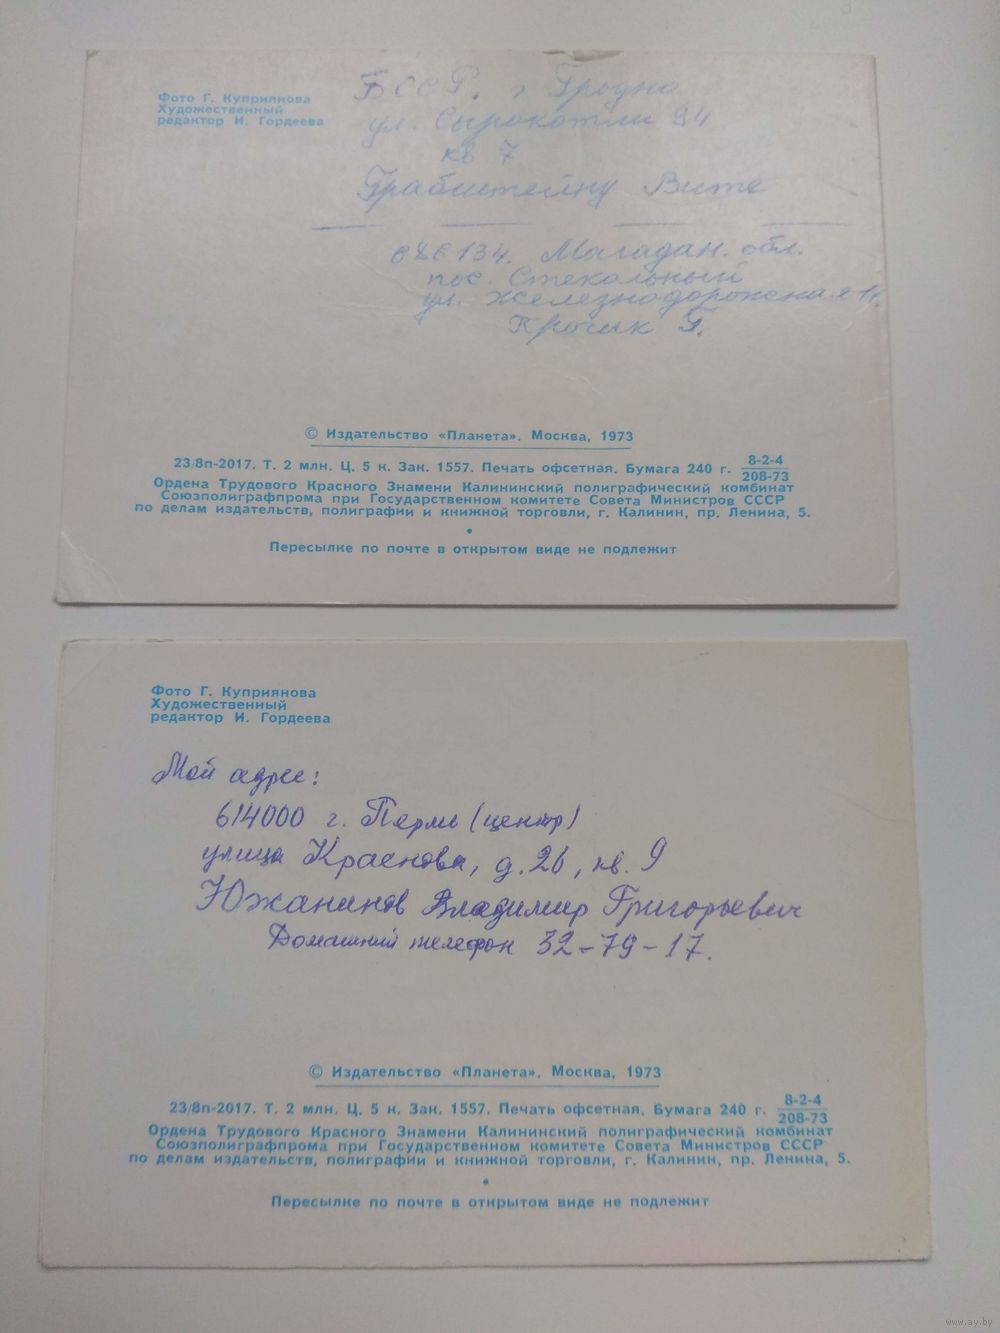 Фото Г. Куприянова
Художественный
редактор И. Гордеева
БССР. г Гродно
ул. Сырокомли 24
кв 7
Грабштейну Вите
686134. Магадан. обл.
пос. Стекольный
ул. Железнодорожная
Г.
© Издательство «Планета». Москва, 1973
23/8п-2017. Т. 2 млн. Ц. 5 к. Зак. 1557. Печать офсетная. Бумага 240 г. 8-2-4
208-73
Ордена Трудового Красного Знамени Калининский полиграфический комбинат
Союзполиграфпрома при Государственном комитете Совета Министров СССР
по делам издательств, полиграфии и книжной торговли, г. Калинин, пр. Ленина, 5.
Пересылке по почте в открытом виде не подлежит
Фото Г. Куприянова
Художественный
редактор И. Гордеева
Мой адрес:
614000 г. Пермь (центр)
улица Краснова, д. 26, кв. 9
Южанинов Владимир Григорьевич
Домашний телефон 32-79-17.
© Издательство «Планета». Москва, 1973
23/8п-2017. Т. 2 млн. Ц. 5 к. Зак. 1557. Печать офсетная. Бумага 240 г. 8-2-4
208-73
Ордена Трудового Красного Знамени Калининский полиграфический комбинат
Союзполиграфпрома при Государственном комитете Совета Министров СССР
по делам издательств, полиграфии и книжной торговли, г. Калинин, пр. Ленина, 5.
Пересылке по почте в открытом виде не подлежит
www.ay.by